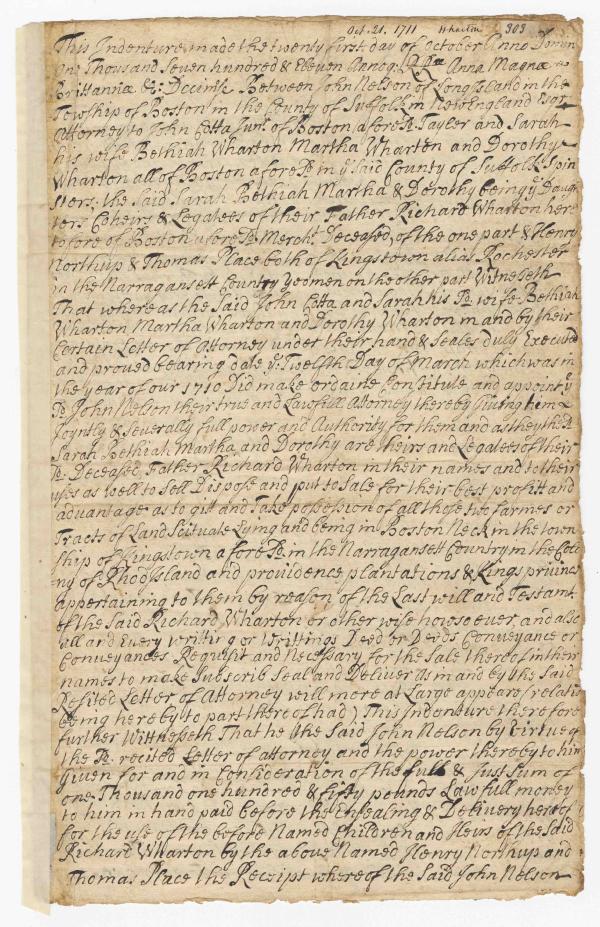 Oct. 21. 1711 Wharton 303
This Indenture made the twenty first day of October Anno Domini
One Thousand Seven hundred & Eleven Annoq: Anna Magnæ
Brittanniæ &c: Decimo Between John Nelson of Long Island in the
Township of Boston in the County of Suffolk in New England Esqr
Attorney to John Cotta Junr. of Boston afore sd. Tayler and Sarah
his wife Bethiah Wharton Martha Wharton and Dorothy
Wharton all of Boston afore sd in ye Said County of Suffolk Spin
sters, the Said Sarah Bethiah Martha & Dorothy being ye Daugh
ters Coheirs & Legatees of their Father Richard Wharton here
tofore of Boston afore sd Mercht. Deceased, of the one part & Henry
Northup & Thomas Place both of Kingstown alias Rochester
in the Narragansett Country Yeomen on the other part Witneseth
That where as the Said John Cotta and Sarah his sd. wife Bethiah
Wharton Martha Wharton and Dorothy Wharton in and by their
Certain Letter of Attorney under their hand & Seales duly Executed
and proved bearing date ye Twelfth Day of March which was in
the year of our 1710 Did make ordaine Constitute and appoint ye
sd. John Nelson their true and Lawfull Attorney thereby Giving him
Joyntly & Severally full power and Authority for them and as they the sd
Sarah Bethiah Martha and Dorothy are heirs and Legatees of their
sd. Deceased Father Richard Wharton in their names and to their
uses as well to Sell Dispose and put to Sale for their best profitt and
advantage as to give and Take possession of all those two farmes or
Tracts of Land Scituate Lying and being in Boston Neck in the town
ship of Kingstown afore sd. in the Narragansett Country in the Colo
ny of Rhod Island and providence plantations & Kings province
appertaining to them by reason of the Last will and Testamt.
of the Said Richard Wharton or other wise howsoever, and also
all and Every writing or writtings Deed or Deeds Conveyance or
Conveyances Requisit and Necessary for the Sale thereof in their
names to make Subscrib Seal and Deliver as in and by the Said
Resited Letter of Attorney will more at Large appeare (relation
being hereby to part thereof had) This Indenture therefore
further Wittneseth That he the Said John Nelson by Virtue of
the sd. recited Letter of attorney and the power thereby to him
Given for and in Consideration of the full & Just Sum of
one Thousand one hundred & fifty pounds Lawfull money
to him in hand paid before the Ensealing & Delivery hereof
for the use of the before Named Children and Heirs of the Said
Richard Wharton by the above Named Henry Northup and
Thomas Place the Receipt where of the Said John Nelson